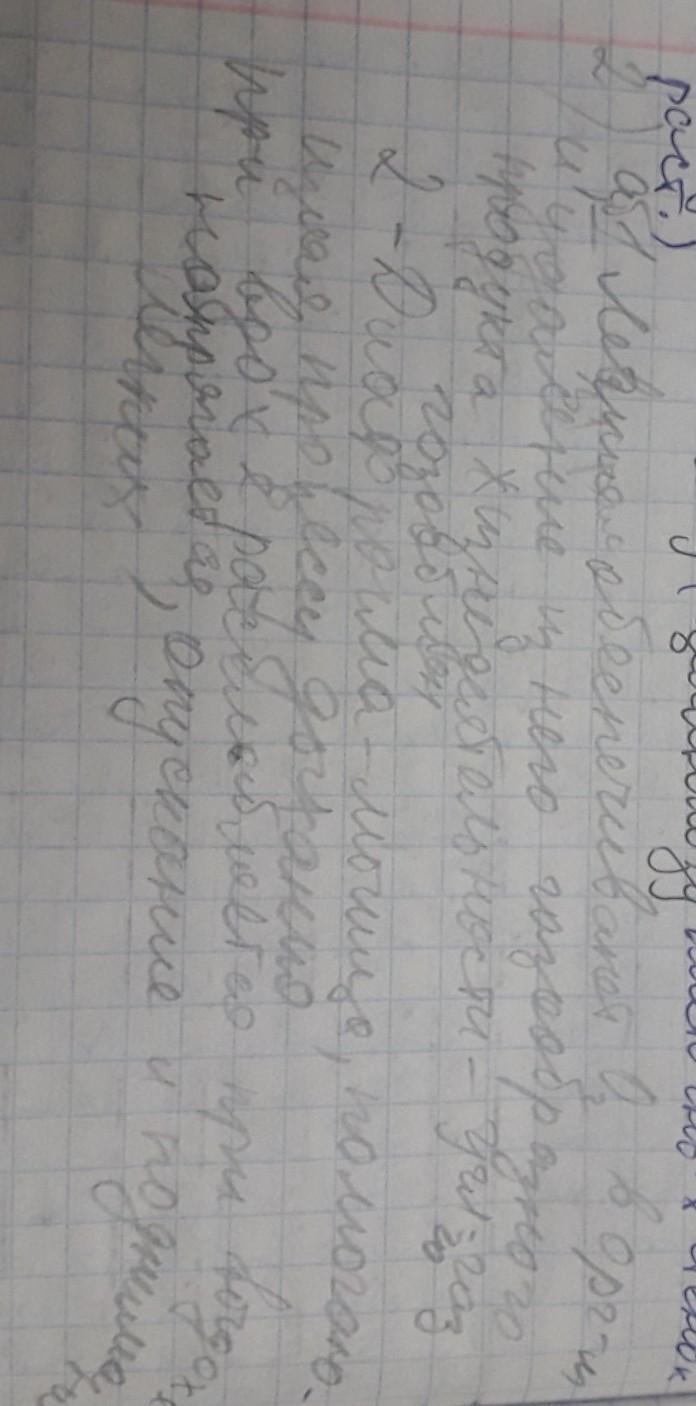 раст.)
2) а) 1 Легкие обеспечивают O₂ в орг-м
и удаление из него газообразного
продукта жизнедеятельности – угл-газ
газообмен
2 - Диафрагма - мышца, помогаю-
щая процессу дыхания
При вдохе расслабляется при выдохе
напрягается, опускание и поднимание
Легких